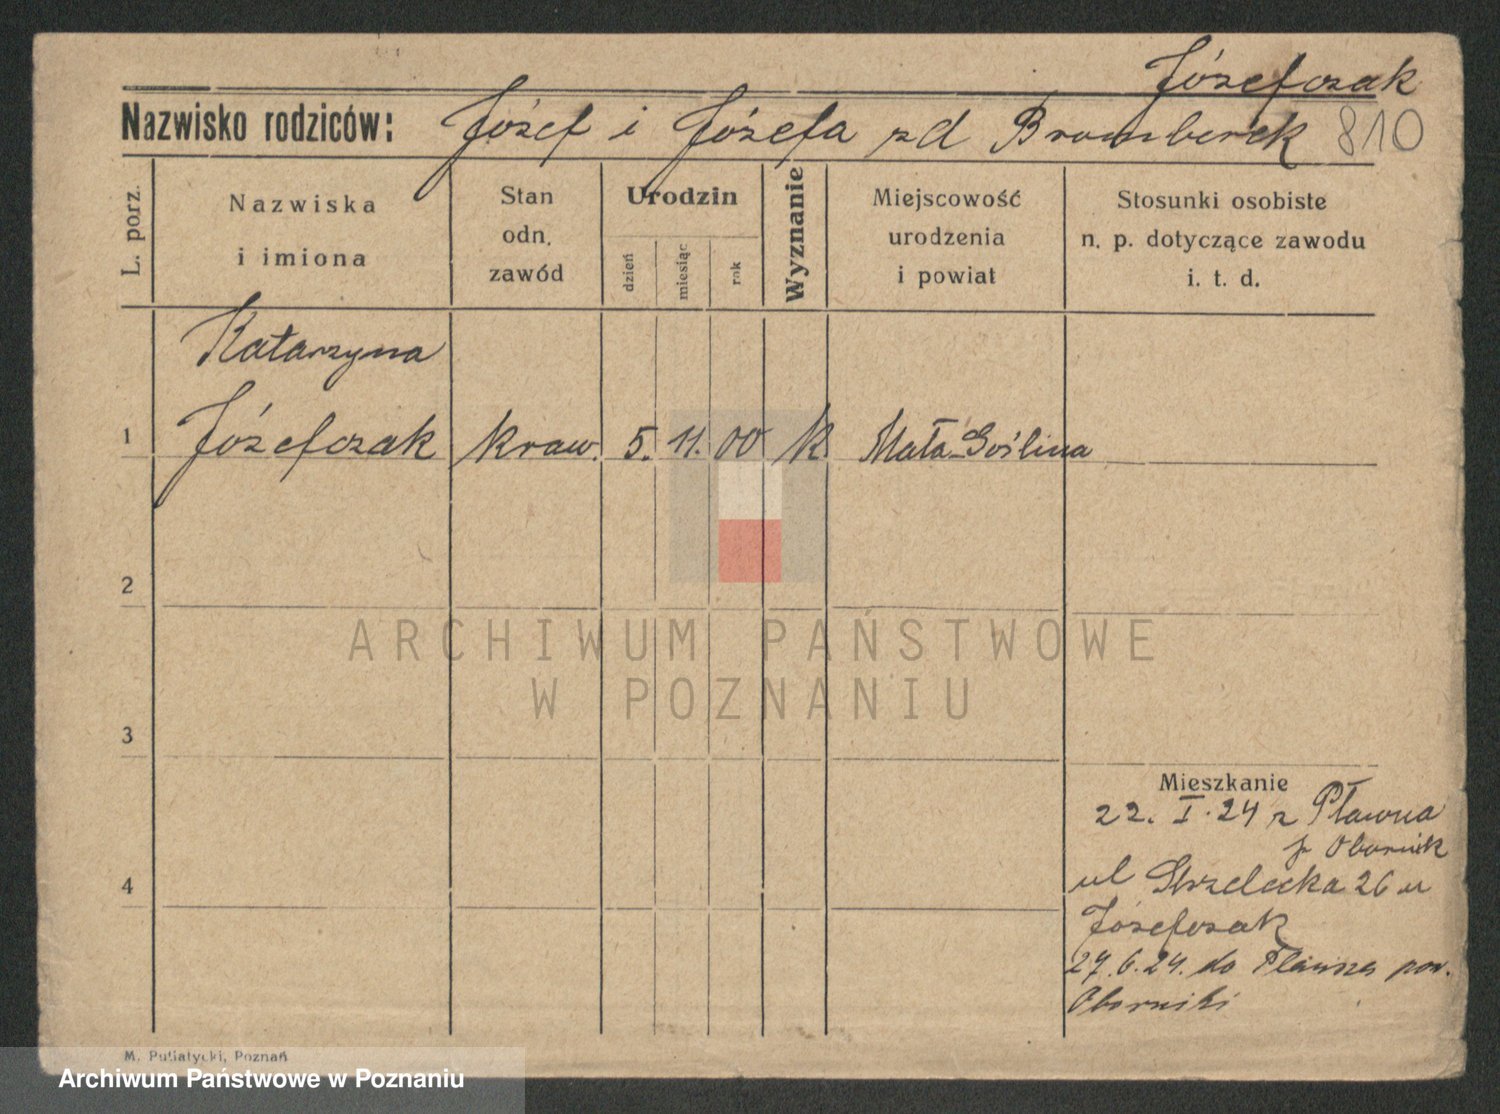 Józefczak
Nazwisko rodziców: Józef i Józefa zd Bromberek 810
L. porz.
Nazwiska
i imiona
Stan
odn.
zawód
Urodzin
dzień
miesiąc
rok
Wyznanie
Miejscowość
urodzenia
i powiat
Stosunki osobiste
n. p. dotyczące zawodu
i. t. d.
Katarzyna
1 Józefczak kraw. 5. 11. 00 k Mała-Goślina
2
ARCHIWUM PAŃSTWOWE
W POZNANIU
3
4
Mieszkanie
22. I. 24 z Pławna
p Obornik
ul Strzelecka 26 u
Józefczak
27.6.24. do pow.
Oborniki
M. Putiatycki, Poznań
Archiwum Państwowe w Poznaniu